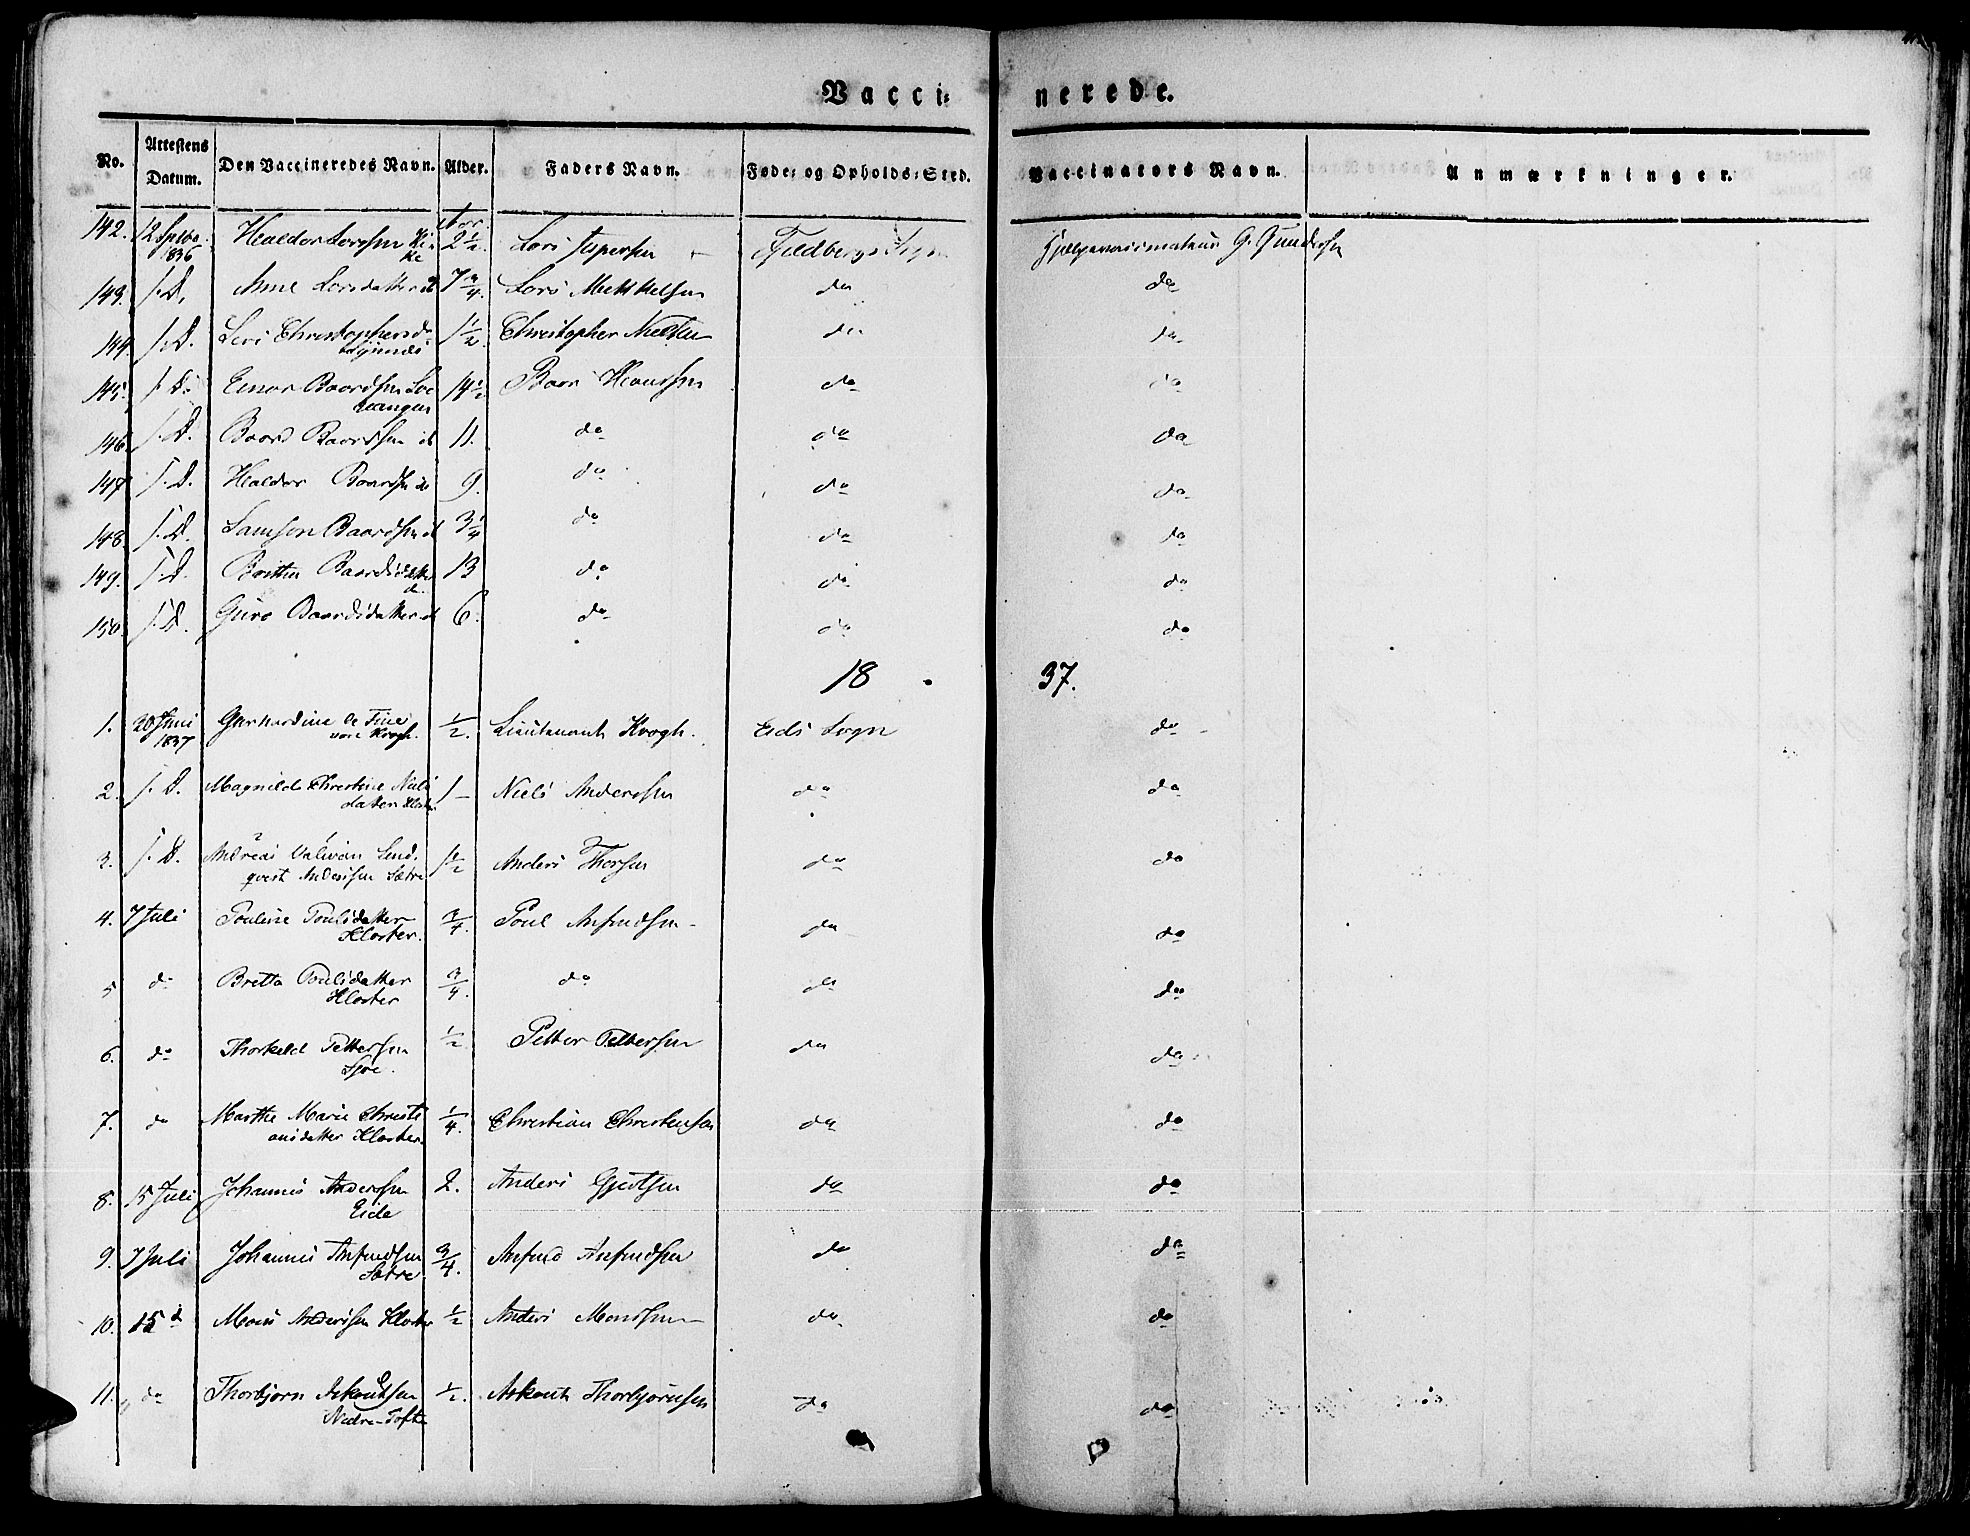 Vaccinerede.
No. Attestens Datum. Den Vaccineredes Navn. Alder. Faders Navn. Føde- og Opholds-Sted. Vaccinators Navn. Anmærkninger.
142. 12 Septbr. 1836 Haldor Larssen 2 1/2. Lars Jespersen Fjeldbergs Sogn Hjelpevaccinateur G. Gundersen
143. s. D. Anne Larsdatter do 7 3/4. Lars Mikkelsen do do
144. s. D. Christophersd. 1 1/2 Christopher Nielsen do do
145. s. D. Einar Baardsen 14 1/2 Baar Hansen do do
vangen
146. s. D. Baard Baardsen do 11. do do do
147. s. D. Haldor Baardsen do 9. do do do
148. s. D. Samson Baardsen do 3 1/4 do do do
149. s. D. Britha Baardsdatter do 13 do do do
150. s. D. Guro Baardsdatter do 6. do do do
18 37.
1. 30 Juni 1837 Gerhardine de Fine
von Krogh. 1/2. Lieutenant Krogh. Eids Sogn do
2. s. D. Magnilde Christine Niels
datter Kloster 1 Niels Anderssen do do
3. s. D. Andreas Lind-
qvist Anderssen Sætre 1 1/2 Anders Thorsen do do
4. 7 Juli Pouline Poulsdatter
Kloster. 3/4. Poul Anfindsen do do
5 do Britta Poulsdatter
Kloster 3/4. do do do
6. do Thorkild Pettersen 1/2 Petter Pettersen do do
7. do Marthe Marie Christi
ansdatter Kloster. 1/4. Christian Christensen do do
8. 15 Juli Johannes Anderssen
Eide 2. Anders do do
9. 7 Juli Johannes Anfindsen
Sætre 3/4. Anfind Anfindsen do do
10. 15 do Mons Anderssen Kloster 1/2 Anders Monssen do do
11. do Thorbjørn Askoutsen
Nedre-Tofte 1/2. Askout Thorbjørnsen do do